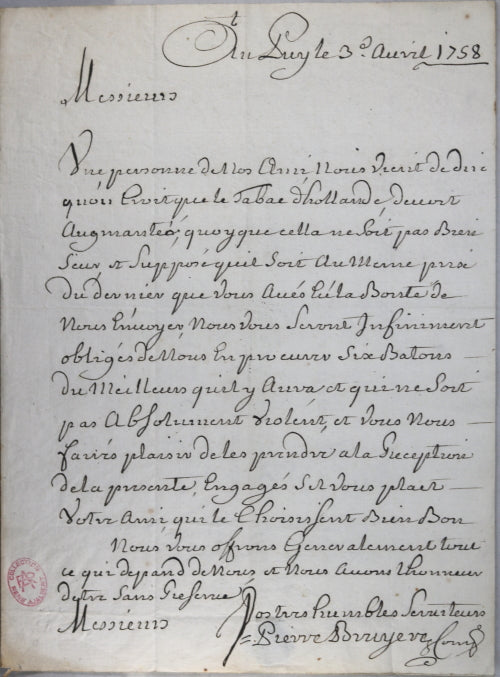 Au Puy le 3e. Avril 1758
Messieurs
Une personne de Nos Ami Nous vient de dire
quon Croit que le Tabac d'hollande devoit
Augmanter, quoyque cella ne Soit pas Bien
Seur, et Supposé quil Soit Au Meme prix
du dernier que Vous Avés Eü la Bonté de
Nous Envoyer, Nous Vous Seront Infiniment
obligés de Nous En procurer Six Batons
du Meilleurs quil y Aura et qui ne Soit
pas Absolument Violent, et Vous Nous
fairés plaisir de les prendre a la Reception
de la presente, Engagés Sil Vous plait
Votre Ami qui le Choisissent Bien Bon
Nous Vous offrons Generalement tout
ce qui depand de Nous et Nous Avons lhonneur
detre Sans Reserve
Messieurs
Vos tres humbles Serviteurs
Pierre Bruyere Comp